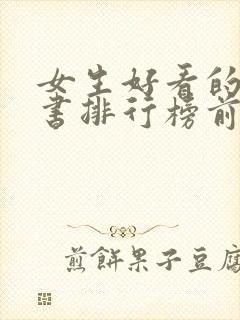 女生好看的
书排行榜前
煎餅果子豆腐